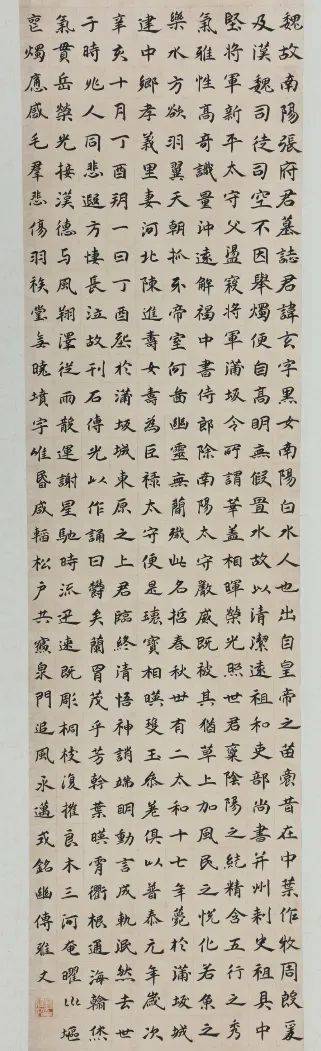 魏故南陽張府君墓誌君諱玄字黑女南陽白水人也出自皇帝之苗裔昔在中葉作牧周殷爰
及漢魏司徒司空不因舉燭便自高明無假置水故以清潔遠祖和吏部尚書并州刾史祖具中
堅將軍新平太守父盪寇將軍蒲坂令所謂華蓋相暉榮光照世君稟陰陽之純精含五行之秀
氣雅性高奇識量沖遠解褐中書侍郎除南陽太守嚴威既被其猶草上加風民之悅化若魚之
樂水方欲羽翼天朝抓牙帝室何啚幽靈無簡殲此名哲春秋卅有二太和十七年薨於蒲坂城
建中鄉孝義里妻河北陳進壽女壽為巨祿太守便是瓌寶相暎雙玉參差俱以普泰元年歲次
辛亥十月丁酉玥一日丁酉葬於蒲坂城東原之上君臨終清悟神誚端明動言成軌泯然去世
于時兆人同悲遐方悽長泣故刊石傳光以作誦曰鬱矣蘭冑茂乎芳幹葉暎霄衢根通海翰烋
氣貫岳榮光接漢德与風翔澤從雨散運謝星馳時流迅速既彫桐枝復摧良木三河奄曜巛塸
燭應感毛羣悲傷羽族堂無曉墳宇唯昏咸韜松戶共寢泉門追風永邁式銘幽傳雅文